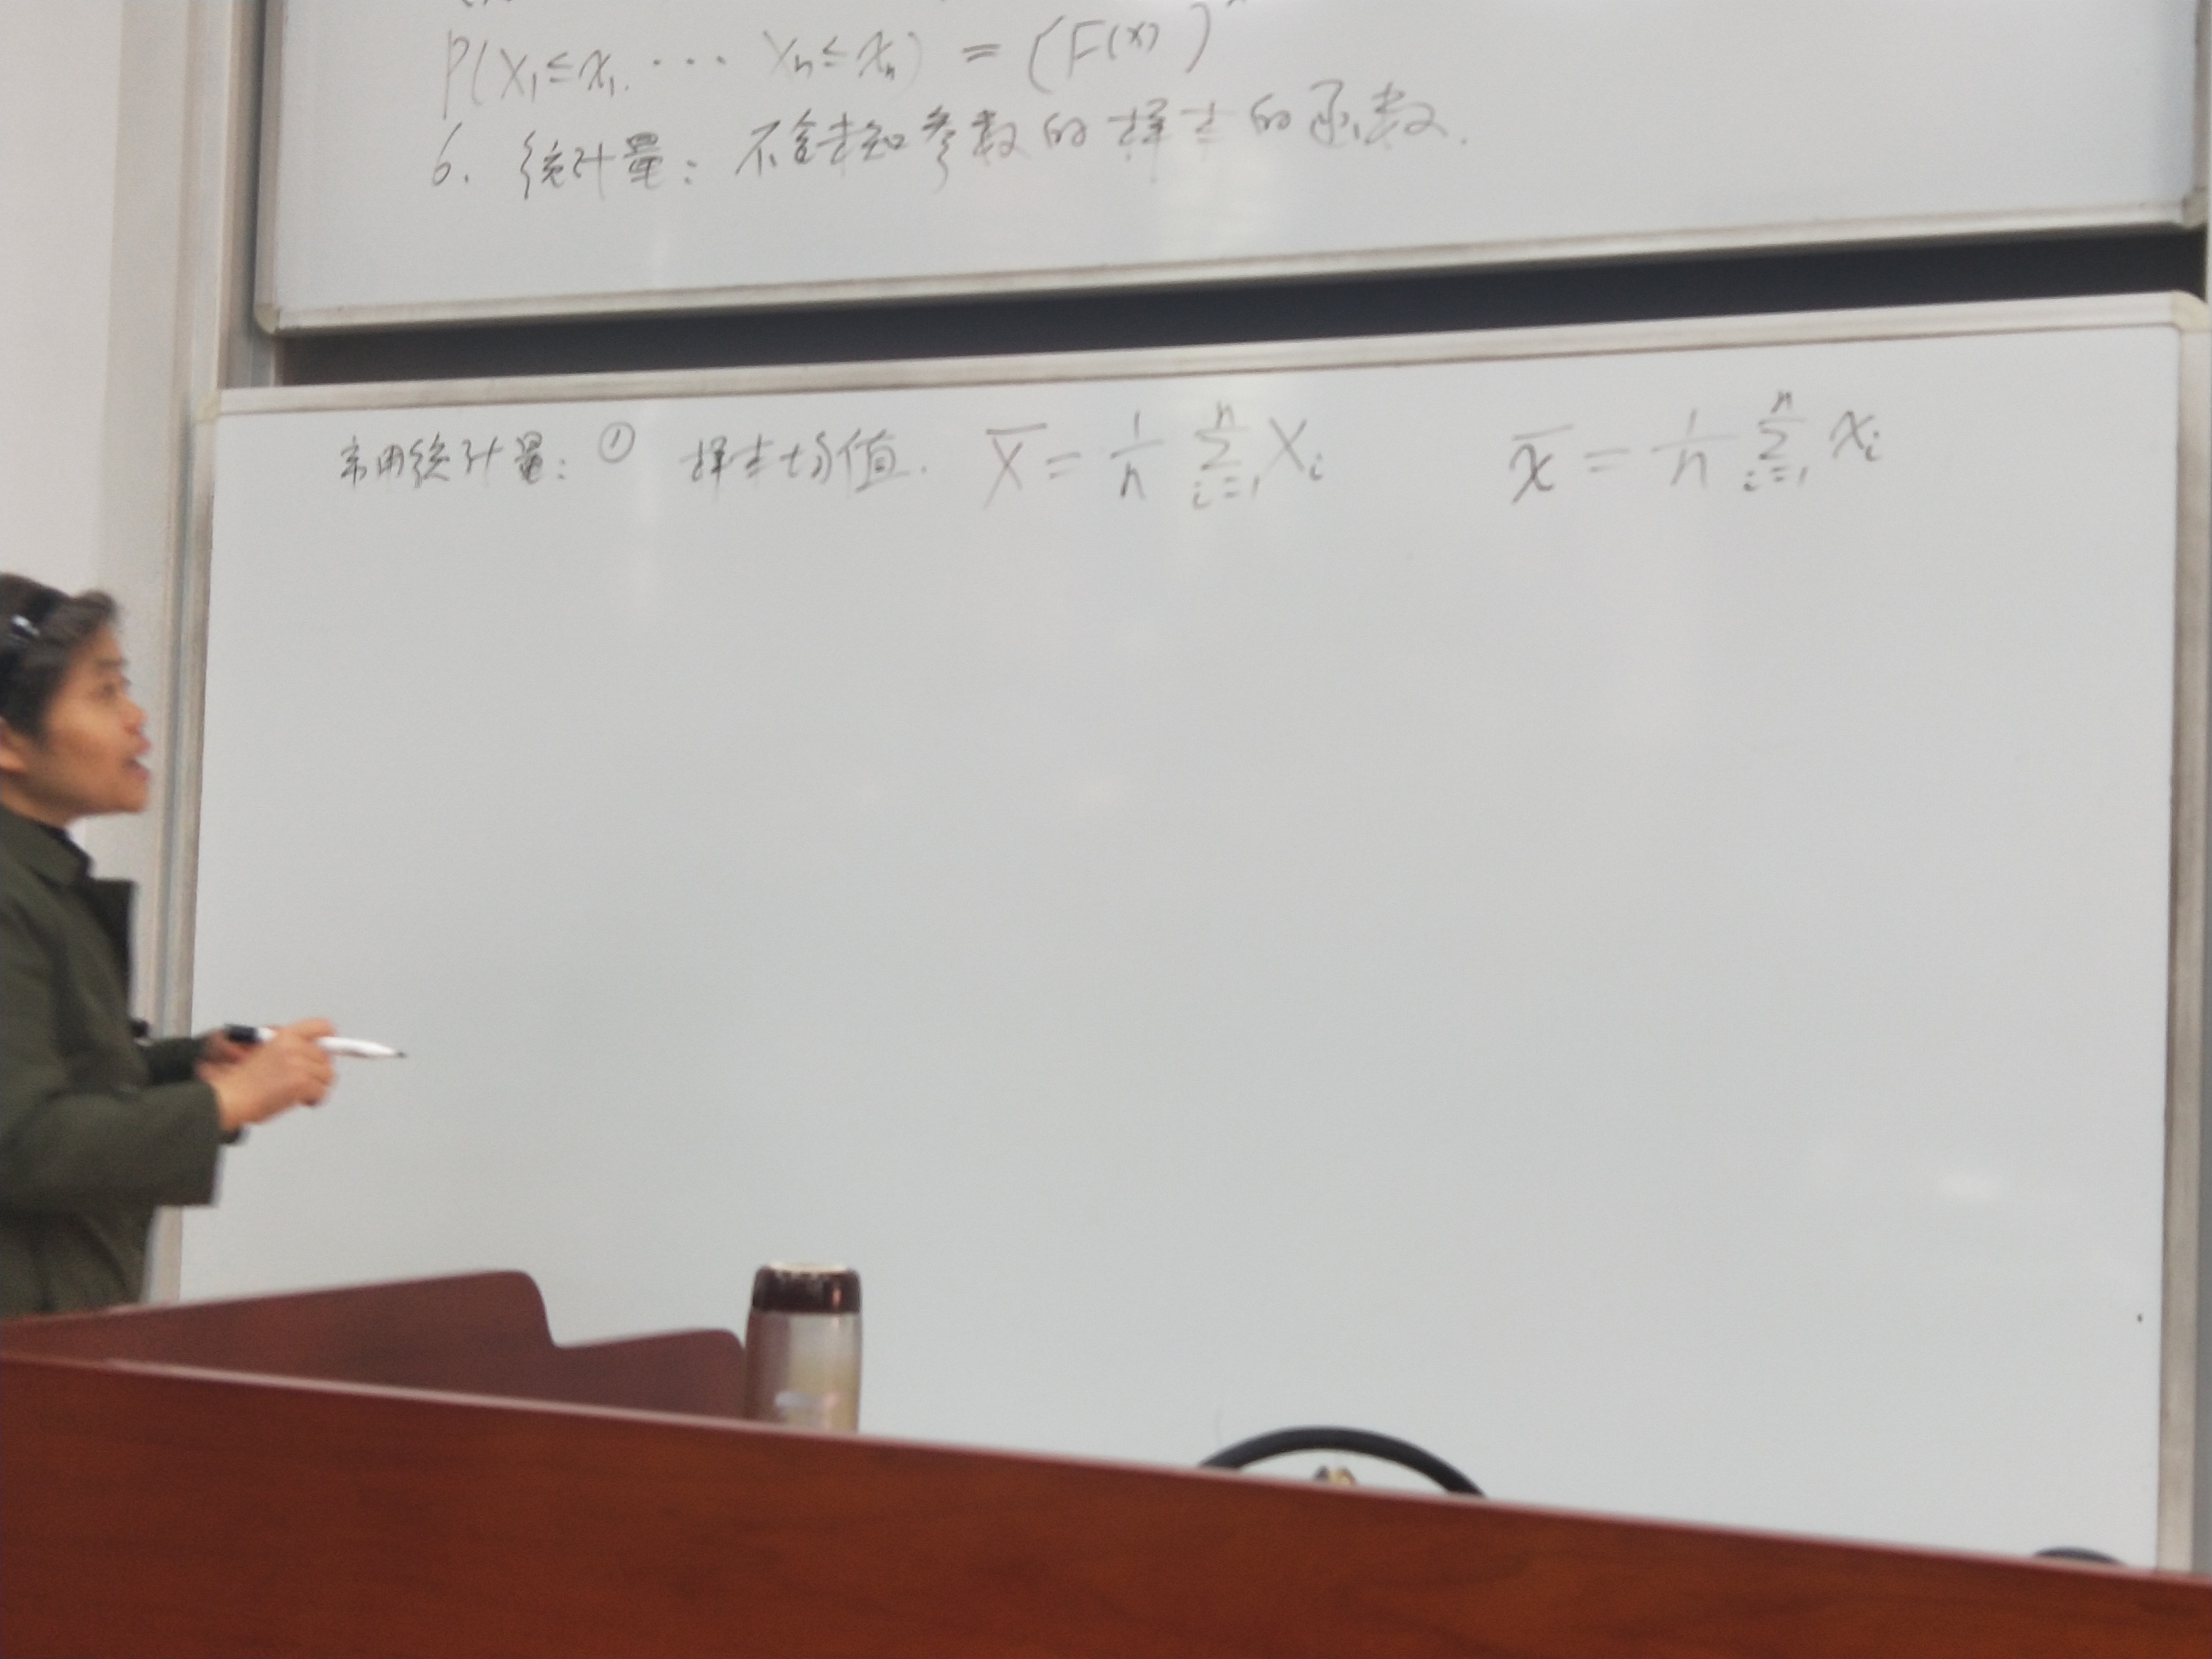 P(X₁≤x₁. ··· Xₙ≤xₙ) = (F(x))ⁿ
6. 统计量：不含未知参数的样本的函数.
常用统计量：① 样本均值. X̄ = 1/n ∑ᵢ₌₁ⁿ Xᵢ x̄ = 1/n ∑ᵢ₌₁ⁿ xᵢ